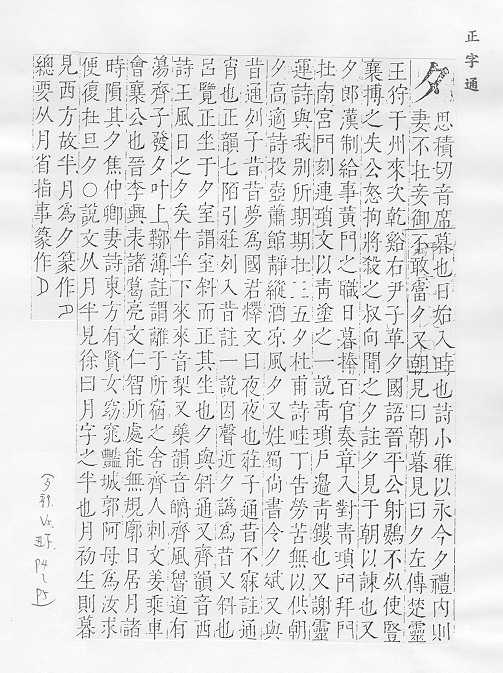 正字通
夕
思積切音席暮也日始入時也詩小雅以永今夕禮內則
妻不在妾御不敢當夕又朝見曰朝暮見曰夕左傳楚靈
王狩于州來次乾谿右尹子革夕國語晉平公射鷃不死使豎
襄搏之失公怒拘將殺之叔向聞之夕註夕見于朝以諫也又
夕郎漢制給事黃門之職日暮捧百官奏章入對青瑣門拜門
在南宮門刻連瑣文以青塗之一說青瑣戶邊青鏤也又謝靈
運詩與我別所期期在三五夕杜甫詩哇丁告勞苦無以供朝
夕高適詩投壺蕭館靜縱酒凉風夕又姓蜀尚書令夕斌又與
昔通列子昔昔夢為國君釋文曰夜夜也莊子通昔不寐註通
宵也正韻七陌引莊列入昔註一說因聲近夕譌為昔又斜也
呂覽正坐于夕室謂室斜而正其坐也夕與斜通又齊韻音西
詩王風日之夕矣牛羊下來來音梨又藥韻音皭齊風魯道有
蕩齊子發夕叶上鞹薄註謂離于所宿之舍齊人刺文姜乘車
會襄公也晉李興表諸葛亮文仁智所處能無規廓日居月諸
時隕其夕焦仲卿妻詩東方有賢女窈窕豔城郭阿母為汝求
便復在旦夕○說文从月半見徐曰月字之半也月初生則暮
見西方故半月為夕篆作
總要从月省指事篆作